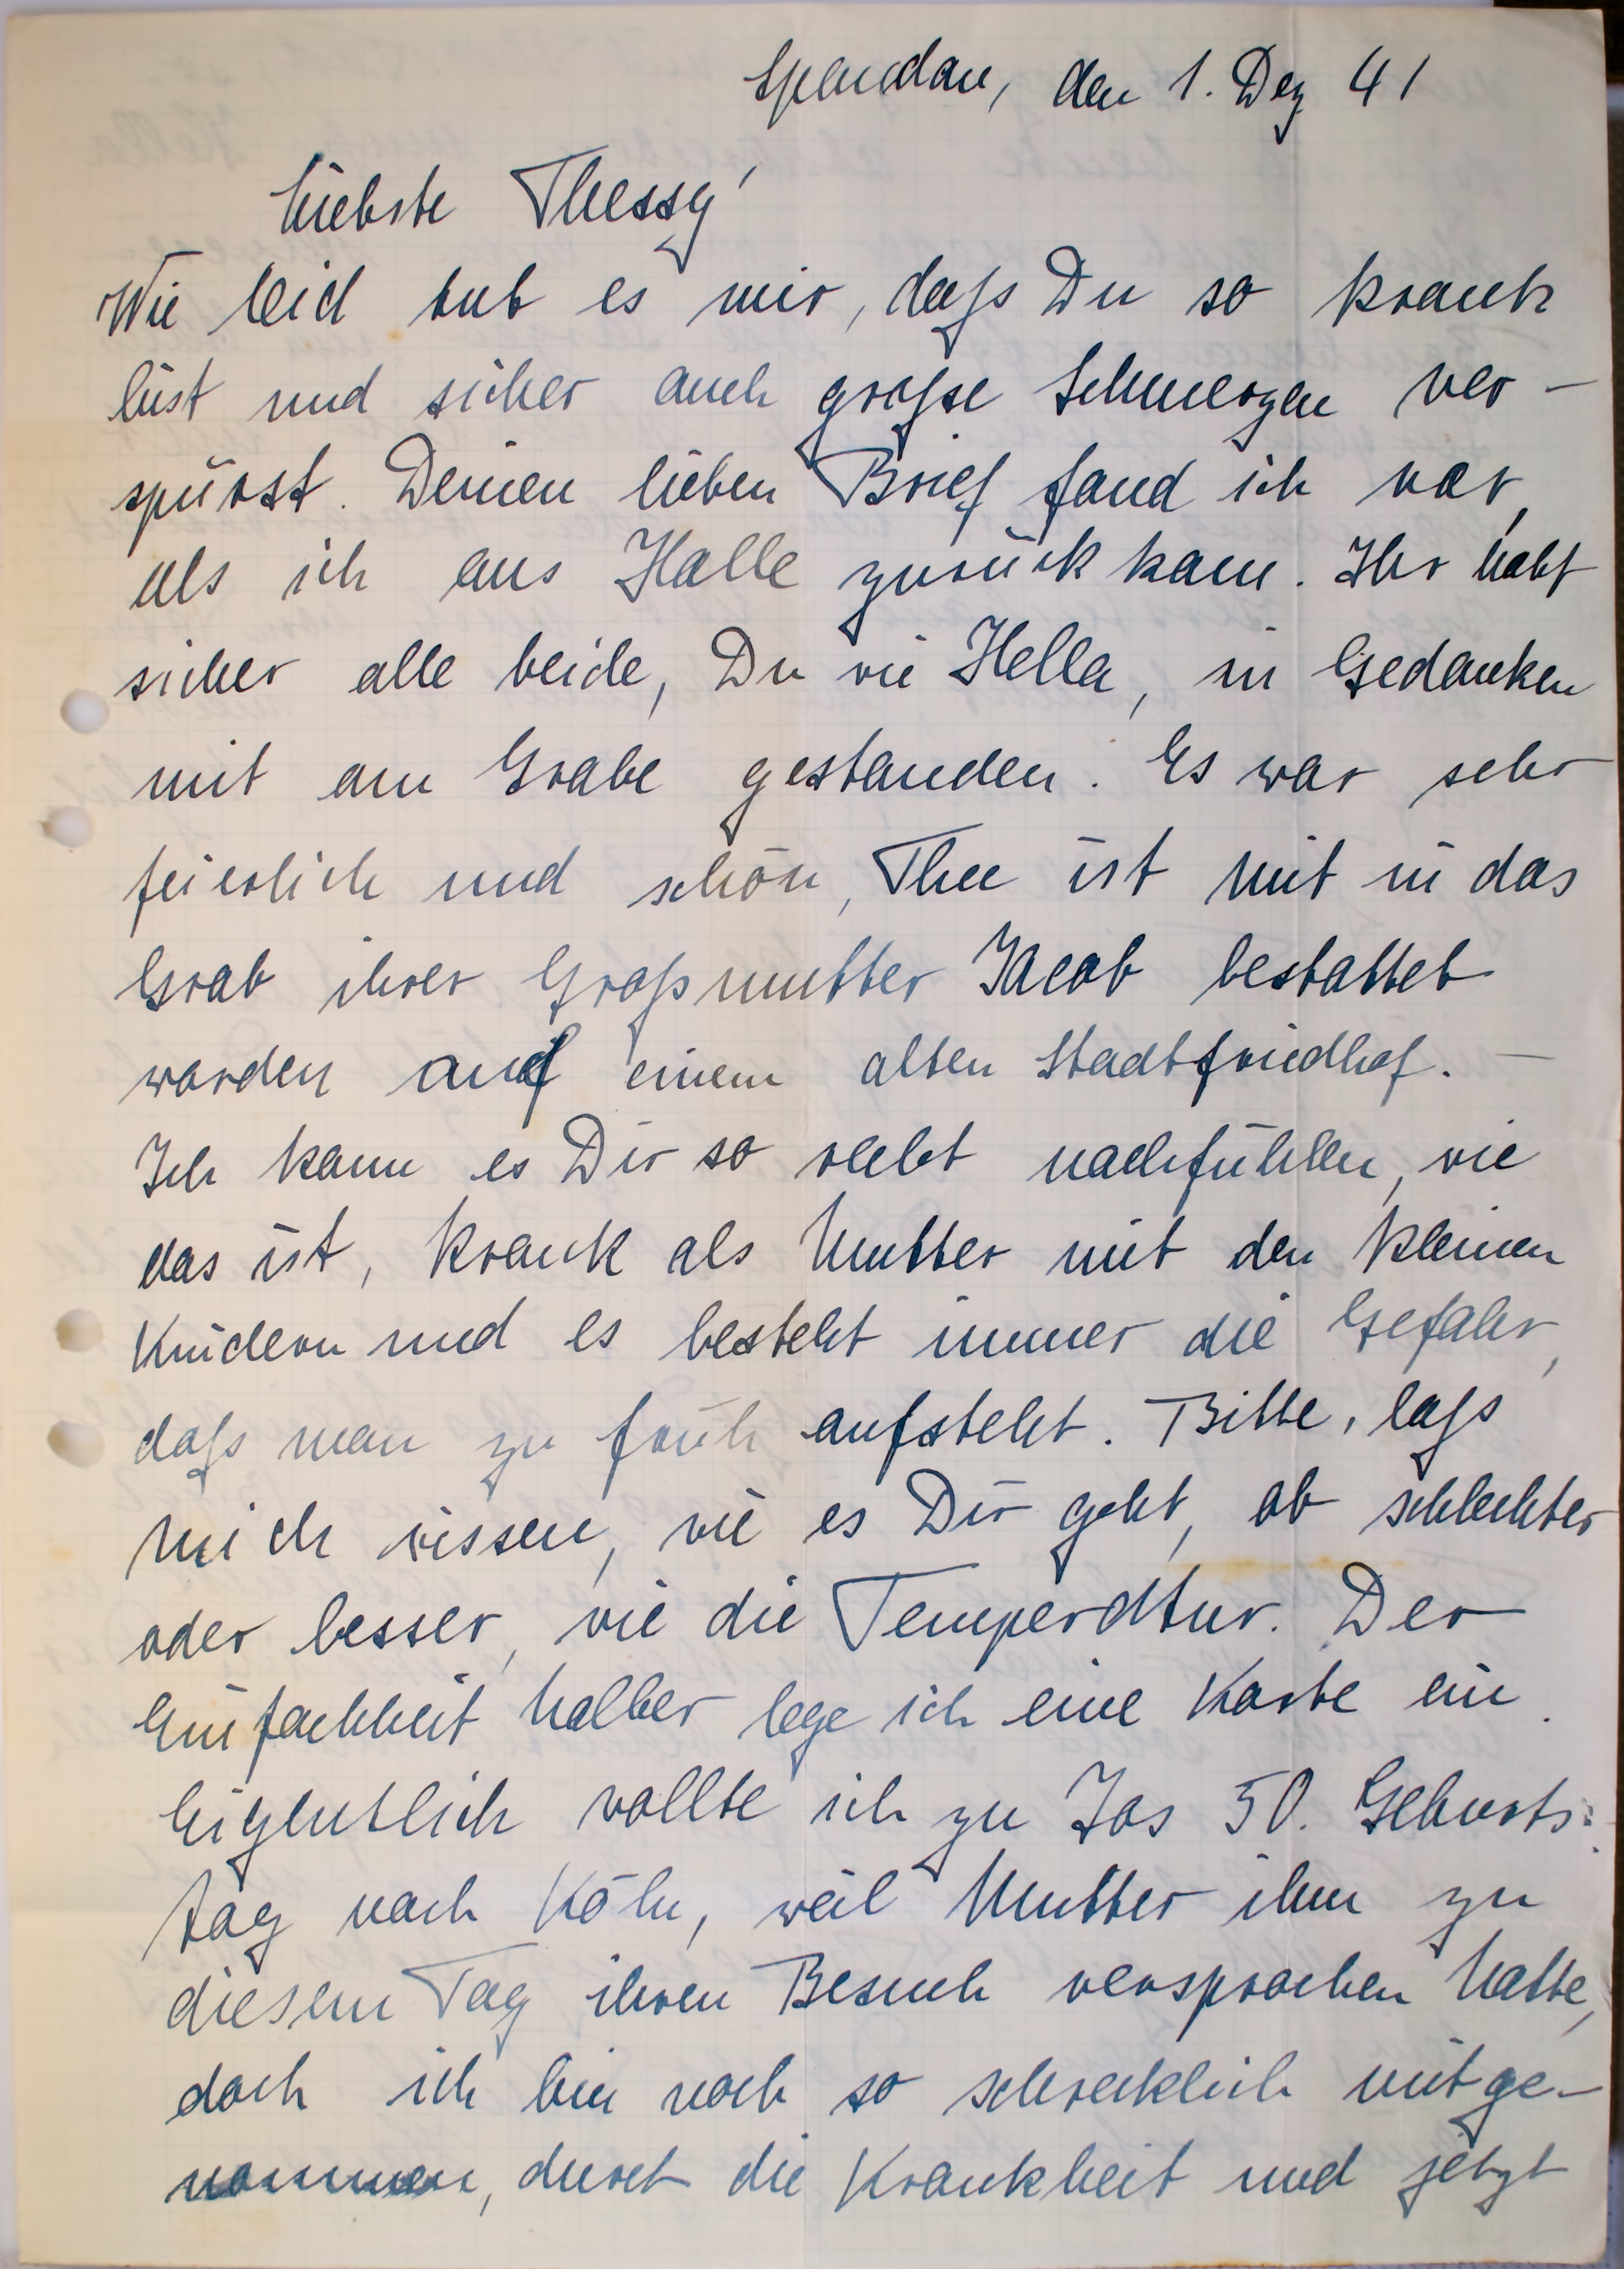 Spandau, den 1. Dez 41
Liebste Thessy!
Wie leid tut es mir, daß Du so krank
bist und sicher auch große Schmerzen ver-
spürst. Deinen lieben Brief fand ich vor,
als ich aus Halle zurück kam. Ihr habt
sicher alle beide, Du wie Hella, in Gedanken
mit am Grabe gestanden. Es war sehr
feierlich und schön, Thee ist mit in das
Grab ihrer Großmutter Jacob bestattet
worden auf einem alten Stadtfriedhof. —
Ich kann es Dir so recht nachfühlen, wie
das ist, krank als Mutter mit den kleinen
Kindern und es besteht immer die Gefahr,
daß man zu früh aufsteht. Bitte, laß
mich wissen, wie es Dir geht, ob schlechter
oder besser, wie die Temperatur. Der
Einfachheit halber lege ich eine Karte ein.
Eigentlich wollte ich zu Jos 50. Geburts-
tag nach Köln, weil Mutter ihm zu
diesem Tag ihren Besuch versprochen hatte,
doch ich bin noch so schrecklich mitge-
nommen, durch die Krankheit und jetzt